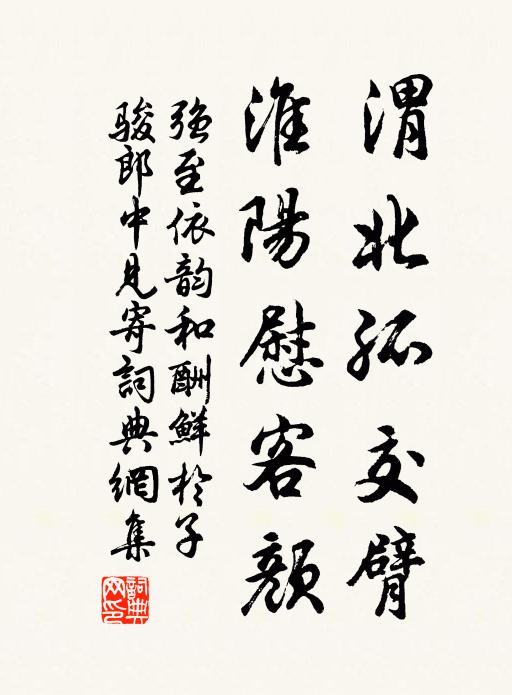 渭北孤交臂
淮陽慰客顔
強至依韵和酬鮮於子
駿郎中見寄詞典網集
詞典網印